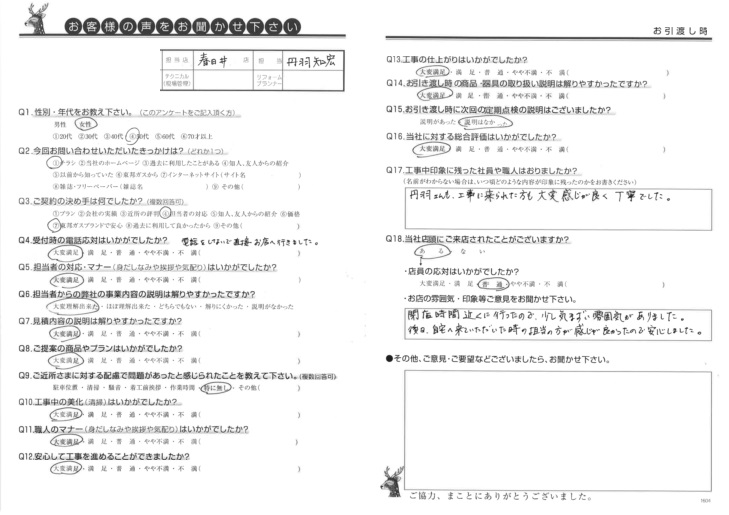 お客様の声をお聞かせ下さい
担当店 春日井 店 担当 丹羽知宏
テクニカル(現場管理) リフォームプランナー
Q1.性別・年代をお教え下さい。(このアンケートをご記入頂く方)
男性 女性
①20代 ②30代 ③40代 ④50代 ⑤60代 ⑥70才以上
Q2.今回お問い合わせいただいたきっかけは?(どれか1つ)
①チラシ ②当社のホームページ ③過去に利用したことがある ④知人、友人からの紹介
⑤以前から知っていた ⑥東邦ガスから ⑦インターネットサイト(サイト名 )
⑧雑誌・フリーペーパー(雑誌名 ) ⑨その他( )
Q3.ご契約の決め手は何でしたか?(複数回答可)
①プラン ②会社の実績 ③近所の評判 ④担当者の対応 ⑤知人、友人からの紹介 ⑥価格
⑦東邦ガスブランドで安心 ⑧過去に利用して良かったから ⑨その他( )
Q4.受付時の電話応対はいかがでしたか? 電話をしないで直接お店へ行きました。
大変満足・満 足・普 通・やや不満・不 満( )
Q5.担当者の対応・マナー(身だしなみや挨拶や気配り)はいかがでしたか?
大変満足・満 足・普 通・やや不満・不 満( )
Q6.担当者からの弊社の事業内容の説明は解りやすかったですか?
大変理解出来た・ほぼ理解出来た・どちらでもない・解りにくかった・説明がなかった
Q7.見積内容の説明は解りやすかったですか?
大変満足・満 足・普 通・やや不満・不 満( )
Q8.ご提案の商品やプランはいかがでしたか?
大変満足・満 足・普 通・やや不満・不 満( )
Q9.ご近所さまに対する配慮で問題があったと感じられたことを教えて下さい。(複数回答可)
駐車位置・清掃・騒音・着工前挨拶・作業時間・特に無し・その他( )
Q10.工事中の美化(清掃)はいかがでしたか?
大変満足・満 足・普 通・やや不満・不 満( )
Q11.職人のマナー(身だしなみや挨拶や気配り)はいかがでしたか?
大変満足・満 足・普 通・やや不満・不 満( )
Q12.安心して工事を進めることができましたか?
大変満足・満 足・普 通・やや不満・不 満( )
お引渡し時
Q13.工事の仕上がりはいかがでしたか?
大変満足・満 足・普 通・やや不満・不 満( )
Q14.お引き渡し時の商品・器具の取り扱い説明は解りやすかったですか?
大変満足・満 足・普 通・やや不満・不 満( )
Q15.お引き渡し時に次回の定期点検の説明はございましたか?
説明があった・説明はなかった
Q16.当社に対する総合評価はいかがでしたか?
大変満足・満 足・普 通・やや不満・不 満( )
Q17.工事中印象に残った社員や職人はおりましたか?
(名前がわからない場合は、いつ頃どのような内容が印象に残ったのかをお書きください)
丹羽さんも、工事に来られた方も大変感じが良く丁寧でした。
Q18.当社店頭にご来店されたことがございますか?
あ る・な い
・店員の応対はいかがでしたか?
大変満足・満 足・普 通・やや不満・不 満( )
・お店の雰囲気・印象等ご意見をお聞かせ下さい。
閉店時間近くに行ったので、少し気まずい雰囲気がありました。
後日、自宅へ来ていただいた時の担当の方が感じが良かったので安心しました。
●その他、ご意見・ご要望などございましたら、お聞かせ下さい。
ご協力、まことにありがとうございました。